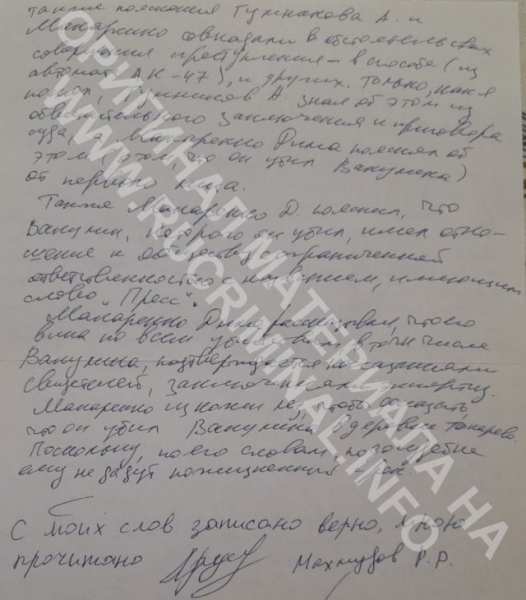 также пояснения Гумнакова А. и
Макаренко совпадали в обстоятельствах
совершения преступления – в способе (из
автомата АК-47), и других. Только, как я
понял, А. знал об этом из
обвинительного заключения и приговора
суда, а Макаренко Дима пояснял об
этом (о том что он убил Вакулина)
от первого лица.
Также Макаренко Д. пояснил, что
Вакулин, которого он убил, имел отно-
шение к обществу с ограниченной
ответственностью с названием, имеющим
слово „Пресс“.
Макаренко Дима рассказывал, что его
вина по всем убийствам в том числе
Вакулина, подтверждается показаниями
свидетелей, заключениями эксперта.
Макаренко
что он убил Вакулина в деревне Токарево.
Поскольку, по его словам,
ему не дадут пожизненный срок.
С моих слов записано верно, мною
прочитано Махмудов Р.Р.
ОРИГИНАЛ МАТЕРИАЛА НА
WWW.RUCRIMINAL.INFO